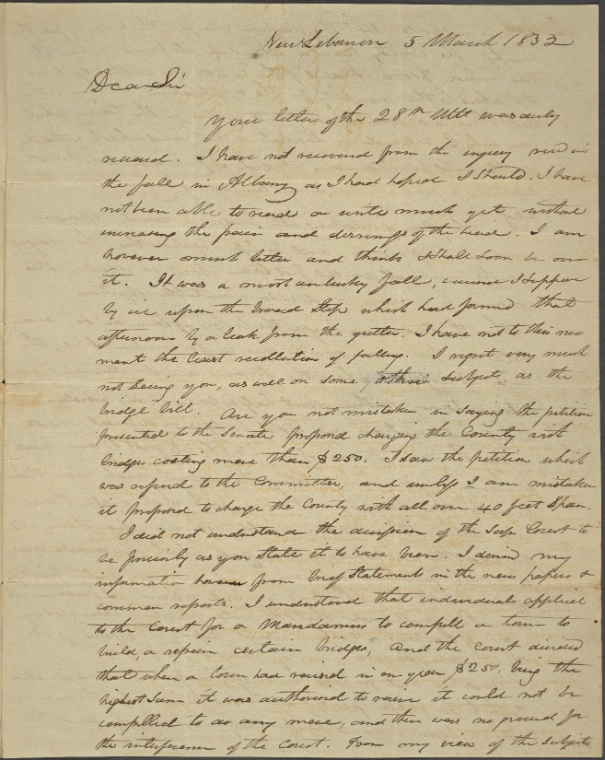 New Lebanon 5 March 1832
Dear Sir
Your letter of the 28th Ult. was duly
received. I have not recovered from the injury recd in
the fall in Albany as I had hoped I should. I have
not been able to read or write much yet without
increasing the pain and dizziness of the head. I am
however much better and think I shall soon be over
it. It was a most unlucky fall, caused I suppose
by ice upon the broad Step which had formed that
afternoon by a leak from the gutter. I have not to this mo
ment the least recollection of falling. I regret very much
not seeing you, as well on some other subjects as the
bridge bill. Are you not mistaken in saying the petition
presented to the Senate proposed charging the County with
bridges costing more than $250. I saw the petition which
was referred to the Committee, and unless I am mistaken
it proposed to charge the County with all over 40 feet Span.
I did not understand the decision of the Sup. Court to
be precisely as you State it to have been. I derived my
information however from brief Statement in the news papers &
common reports. I understood that individuals applied
to the Court for a Mandamus to compell a town to
build, or repair certain bridges, and the Court decided
that when a town had raised in one year $250, being the
highest Sum it was authorized to raise it could not be
compelled to do any more, and there was no ground for
the interference of the Court. From my view of the Subject